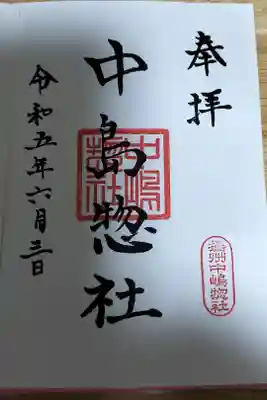 奉拝
遠州中嶋惣社
中島惣社
中嶋惣社
令和五年六月三日